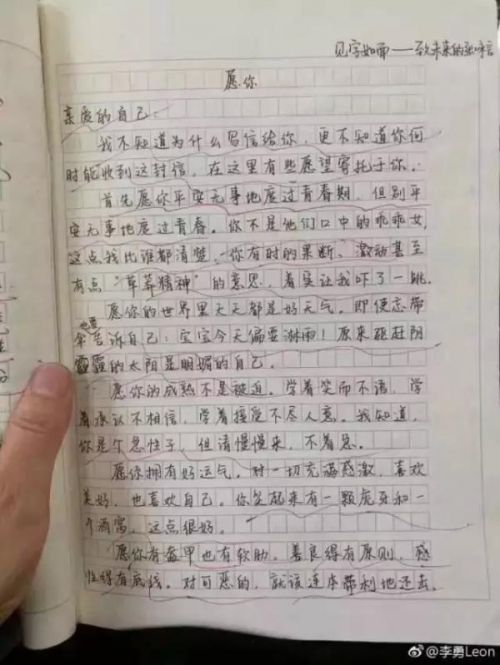 见字如面——致未来的
愿你
亲爱的自己：
我不知道为什么写信给你，更不知道你何
时能收到这封信，在这里有些愿望寄托于你。
首先愿你平安无事地度过青春期，但别平
安无事地度过青春。你不是他们口中的乖乖女，
这点我比谁都清楚，你有时的果断、激动甚至
有点“草莽精神”的意思，着实让我吓了一跳。
愿你的世界里天天都是好天气。即使忘带
伞也要告诉自己：宝宝今天偏要淋雨！原来驱赶阴
霾的太阳是明媚的自己。
愿你的成熟不是被迫。学着笑而不语，学
着承认不相信，学着接受不尽人意。我知道，
你是个急性子，但请慢慢来，不着急。
愿你拥有好运气。对一切充满感激，喜欢
美好，也喜欢自己。你笑起来有一颗虎牙和一
个酒窝，这点很好。
愿你有盔甲也有软肋。善良得有原则，感
性得有底线。对可恶的，就该连本带利地还击。
@李勇Leon